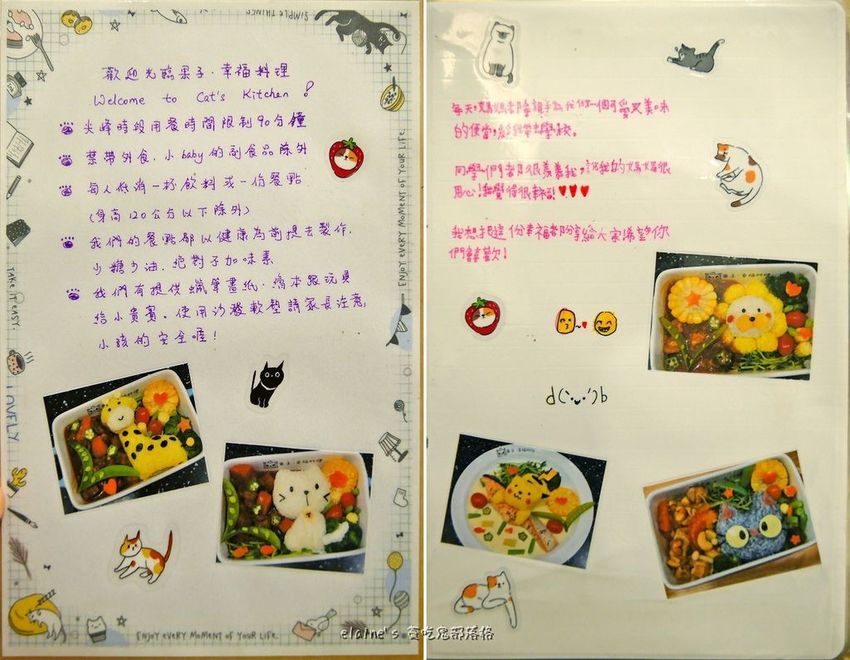 SIMPLE THINGS
歡迎光臨果子.幸福料理
Welcome to Cat's Kitchen!
尖峰時段用餐時間限制90分鐘
禁帶外食.小baby的副食品除外
每人低消一杯飲料或一份餐點
(身高120公分以下除外)
我們的餐點都以健康為前提去製作.
少糖少油.絕對不加味素
我們有提供蠟筆畫紙.繪本跟玩具
給小貴賓.使用沙發軟墊請家長注意
小孩的安全喔!
ENJOY EVERY MOMENT OF YOUR LIFE.
TAKE IT EASY.
LOVELY
ENJOY EVERY MOMENT OF YOUR LIFE.
每天,媽媽都會親手為我做一個可愛又美味
的便當,給我帶去學校。
同學們都很羨慕我,說我的媽媽很
用心!我覺得很幸福!♥♥♥
我想把這份幸福都分享給大家希望你
們會喜歡!
d(`･ᴗ･´)b
elaine's 貪吃鬼部落格